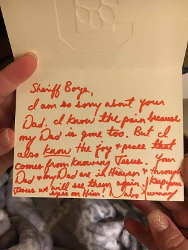 Sheriff Boys,
I am so sorry about your
Dad. I know the pain because
my Dad is gone too. But I
also know the joy & peace that
comes from knowing Jesus. Your
Dad & my Dad are in Heaven & through
Jesus we will see them again. Keep your
eyes on Him!